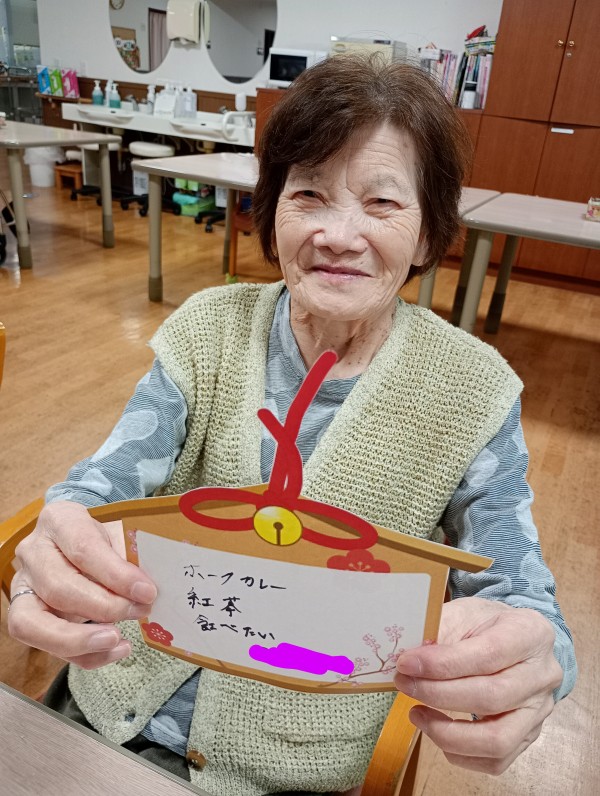 ポークカレー
紅茶
食べたい